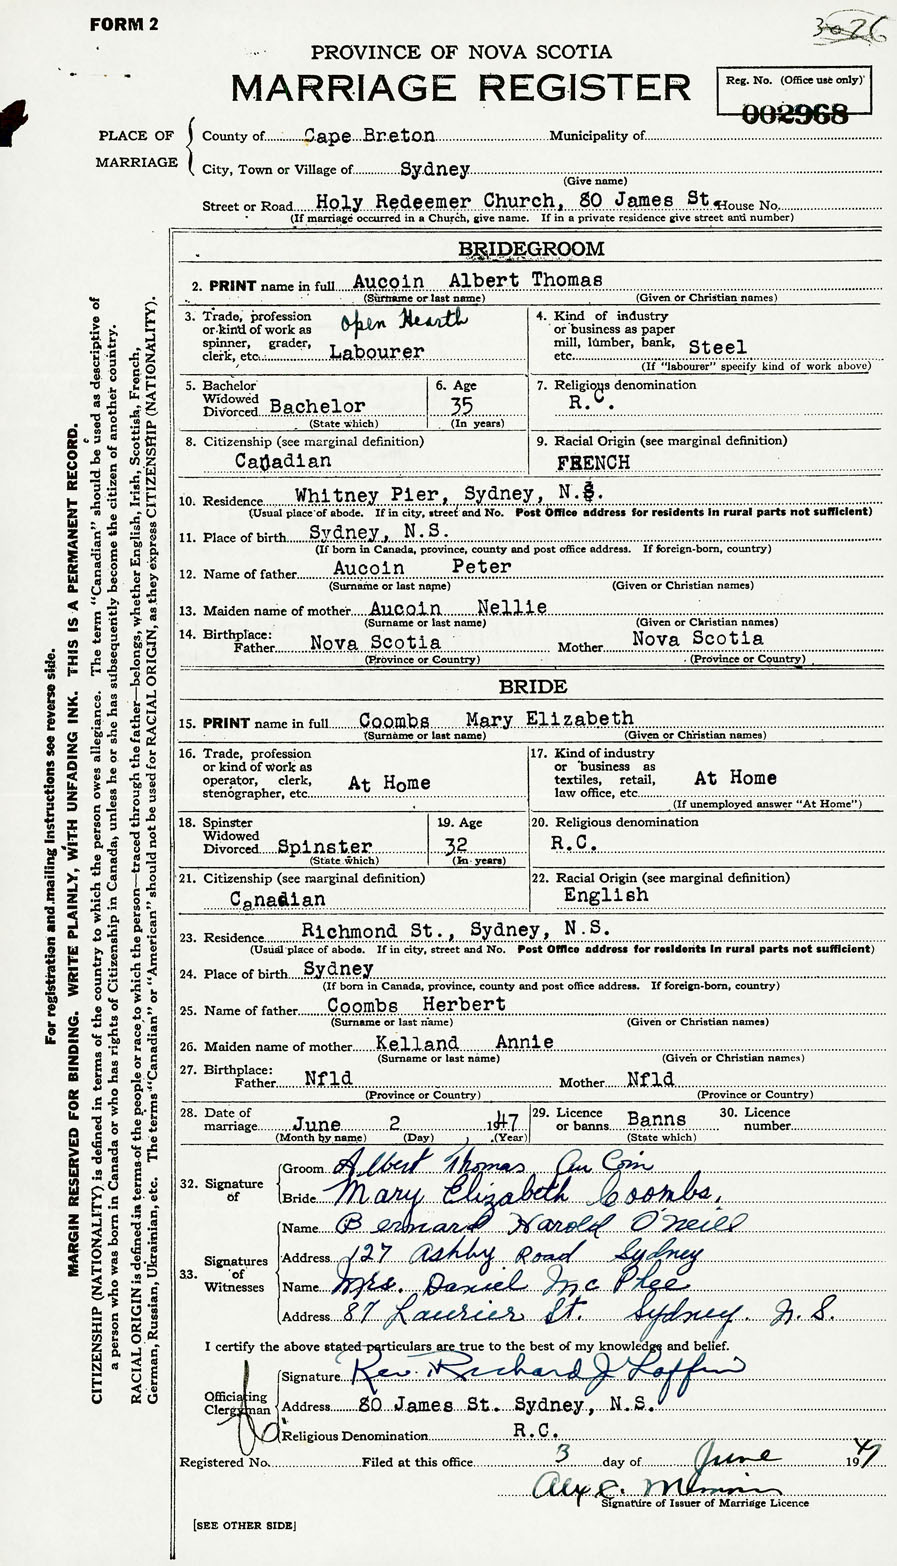 FORM 2
3026
PROVINCE OF NOVA SCOTIA
MARRIAGE REGISTER
Reg. No. (Office use only)
002968
PLACE OF MARRIAGE
County of Cape Breton Municipality of
City, Town or Village of Sydney
(Give name)
Street or Road Holy Redeemer Church, 80 James St. House No.
(If marriage occurred in a Church, give name. If in a private residence give street and number)
BRIDEGROOM
2. PRINT name in full Aucoin Albert Thomas
(Surname or last name) (Given or Christian names)
3. Trade, profession or kind of work as spinner, grader, clerk, etc. Open Hearth Labourer
4. Kind of industry or business as paper mill, lumber, bank, etc. Steel
(If "labourer" specify kind of work above)
5. Bachelor Widowed Divorced Bachelor
(State which)
6. Age 35
(In years)
7. Religious denomination R.C.
8. Citizenship (see marginal definition) Canadian
9. Racial Origin (see marginal definition) FRENCH
10. Residence Whitney Pier, Sydney, N.S.
(Usual place of abode. If in city, street and No. Post Office address for residents in rural parts not sufficient)
11. Place of birth Sydney, N.S.
(If born in Canada, province, county and post office address. If foreign-born, country)
12. Name of father Aucoin Peter
(Surname or last name) (Given or Christian names)
13. Maiden name of mother Aucoin Nellie
(Surname or last name) (Given or Christian names)
14. Birthplace: Father Nova Scotia Mother Nova Scotia
(Province or Country) (Province or Country)
BRIDE
15. PRINT name in full Coombs Mary Elizabeth
(Surname or last name) (Given or Christian names)
16. Trade, profession or kind of work as operator, clerk, stenographer, etc. At Home
17. Kind of industry or business as textiles, retail, law office, etc. At Home
(If unemployed answer "At Home")
18. Spinster Widowed Divorced Spinster
(State which)
19. Age 32
(In years)
20. Religious denomination R.C.
21. Citizenship (see marginal definition) Canadian
22. Racial Origin (see marginal definition) English
23. Residence Richmond St., Sydney, N.S.
(Usual place of abode. If in city, street and No. Post Office address for residents in rural parts not sufficient)
24. Place of birth Sydney
(If born in Canada, province, county and post office address. If foreign-born, country)
25. Name of father Coombs Herbert
(Surname or last name) (Given or Christian names)
26. Maiden name of mother Kelland Annie
(Surname or last name) (Given or Christian names)
27. Birthplace: Father Nfld Mother Nfld
(Province or Country) (Province or Country)
28. Date of marriage June 2 1947
(Month by name) (Day) (Year)
29. Licence or banns Banns
(State which)
30. Licence number
32. Signature of
Groom Albert Thomas Au Coin
Bride Mary Elizabeth Coombs.
33. Signatures of Witnesses
Name Bernard Harold O'Neill
Address 127 Ashby Road Sydney
Name Mrs. Daniel Mc Phee
Address 87 Laurier St. Sydney. N.S.
I certify the above stated particulars are true to the best of my knowledge and belief.
Officiating Clergyman
Signature Rev. Richard J Laffin
Address 80 James St. Sydney, N.S.
Religious Denomination R.C.
Registered No. Filed at this office 3 day of June 1947
Alex C.
Signature of Issuer of Marriage Licence
[SEE OTHER SIDE]
For registration and mailing instructions see reverse side.
MARGIN RESERVED FOR BINDING. WRITE PLAINLY, WITH UNFADING INK. THIS IS A PERMANENT RECORD.
CITIZENSHIP (NATIONALITY) is defined in terms of the country to which the person owes allegiance. The term "Canadian" should be used as descriptive of
a person who was born in Canada or who has rights of Citizenship in Canada, unless he or she has subsequently become the citizen of another country.
RACIAL ORIGIN is defined in terms of the people or race to which the person—traced through the father—belongs, whether English, Irish, Scottish, French,
German, Russian, Ukrainian, etc. The terms "Canadian" or "American" should not be used for RACIAL ORIGIN, as they express CITIZENSHIP (NATIONALITY).